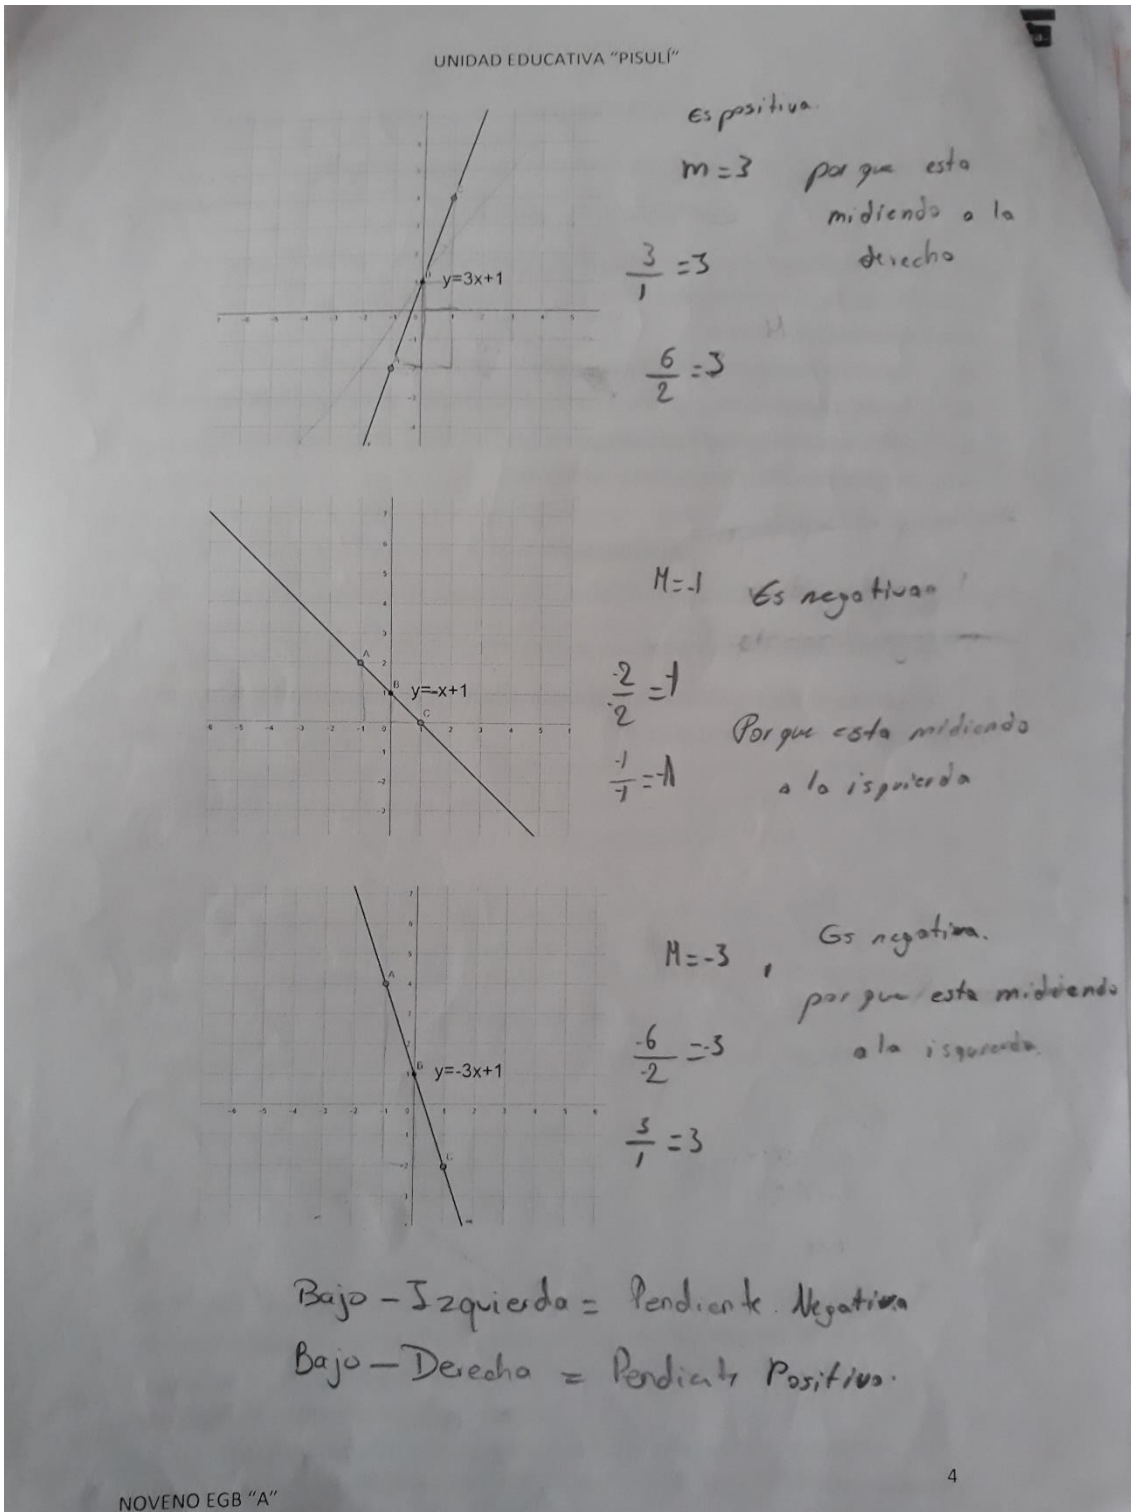 UNIDAD EDUCATIVA "PISULÍ"
Es positiva.
m=3 por que esta
midiendo a la
derecho
3/1 =3
6/2 =3
y=3x+1
M=-1 Es negativa
-2/2 =-1
Por que esta midiendo
a la isquierda
-1/-1 =-1
A
B
y=-x+1
C
Es negativa.
M=-3 ,
por que esta midiendo
a la isquierda.
-6/-2 =-3
3/1 =3
A
B
y=-3x+1
C
Bajo - Izquierda = Pendiente Negativa
Bajo - Derecha = Pendiente Positivo.
4
NOVENO EGB "A"